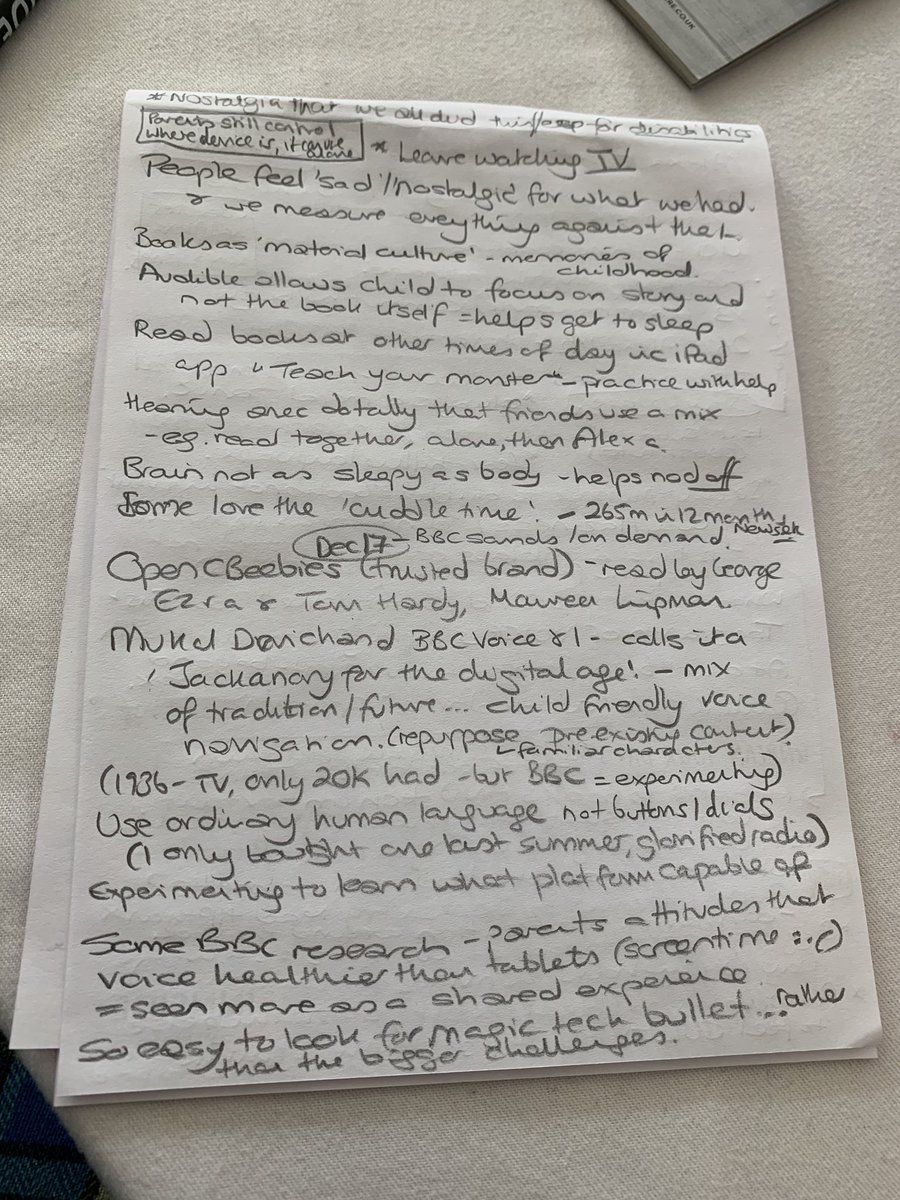 RE.CO.UK
* Nostalgia that we all did this/esp for disabilities
Parents still control
where device is, it can be
alone
* Leave watching TV
People feel 'sad'/nostalgic for what we had.
& we measure everything against that.
Books as 'material culture' - memories of
childhood.
Audible allows child to focus on story and
not the book itself = helps get to sleep
Read books at other times of day via iPad
app "Teach your monster" - practice with help
Hearing anecdotally that friends use a mix
- eg. read together, alone, then Alexa.
Brain not as sleepy as body - helps nod off
Some love the 'cuddle time'. - 265m in 12 month
Dec 17 - BBC sounds / on demand
Open CBeebies (trusted brand) - read by George
Ezra & Tom Hardy, Maureen Lipman
BBC Voice & I - calls it a
'Jackanory for the digital age'. - mix
of tradition/future... child friendly voice
navigation. (repurpose pre existing content)
familiar characters.
(1936 - TV, only 20K had - but BBC = experimenting)
Use ordinary human language not buttons/dials
(I only bought one last summer, glorified radio)
Experimenting to learn what platform capable of
Some BBC research - parents attitudes that
voice healthier than tablets (screentime :. c)
= seen more as a shared experience
So easy to look for magic tech bullet... rather
than the bigger challenges.